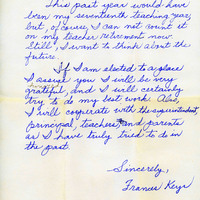 This past year would have
been my seventeenth teaching year,
but, of course, I can not count it
on my teacher retirement now.
Still, I want to think about the
future.
If I am elected to a place
I assure you I will be very
grateful, and I will certainly
try to do my best work. Also,
I will cooperate with the superintendent,
principal, teachers, and parents
as I have truly tried to do in
the past.
Sincerely,
Frances Keys